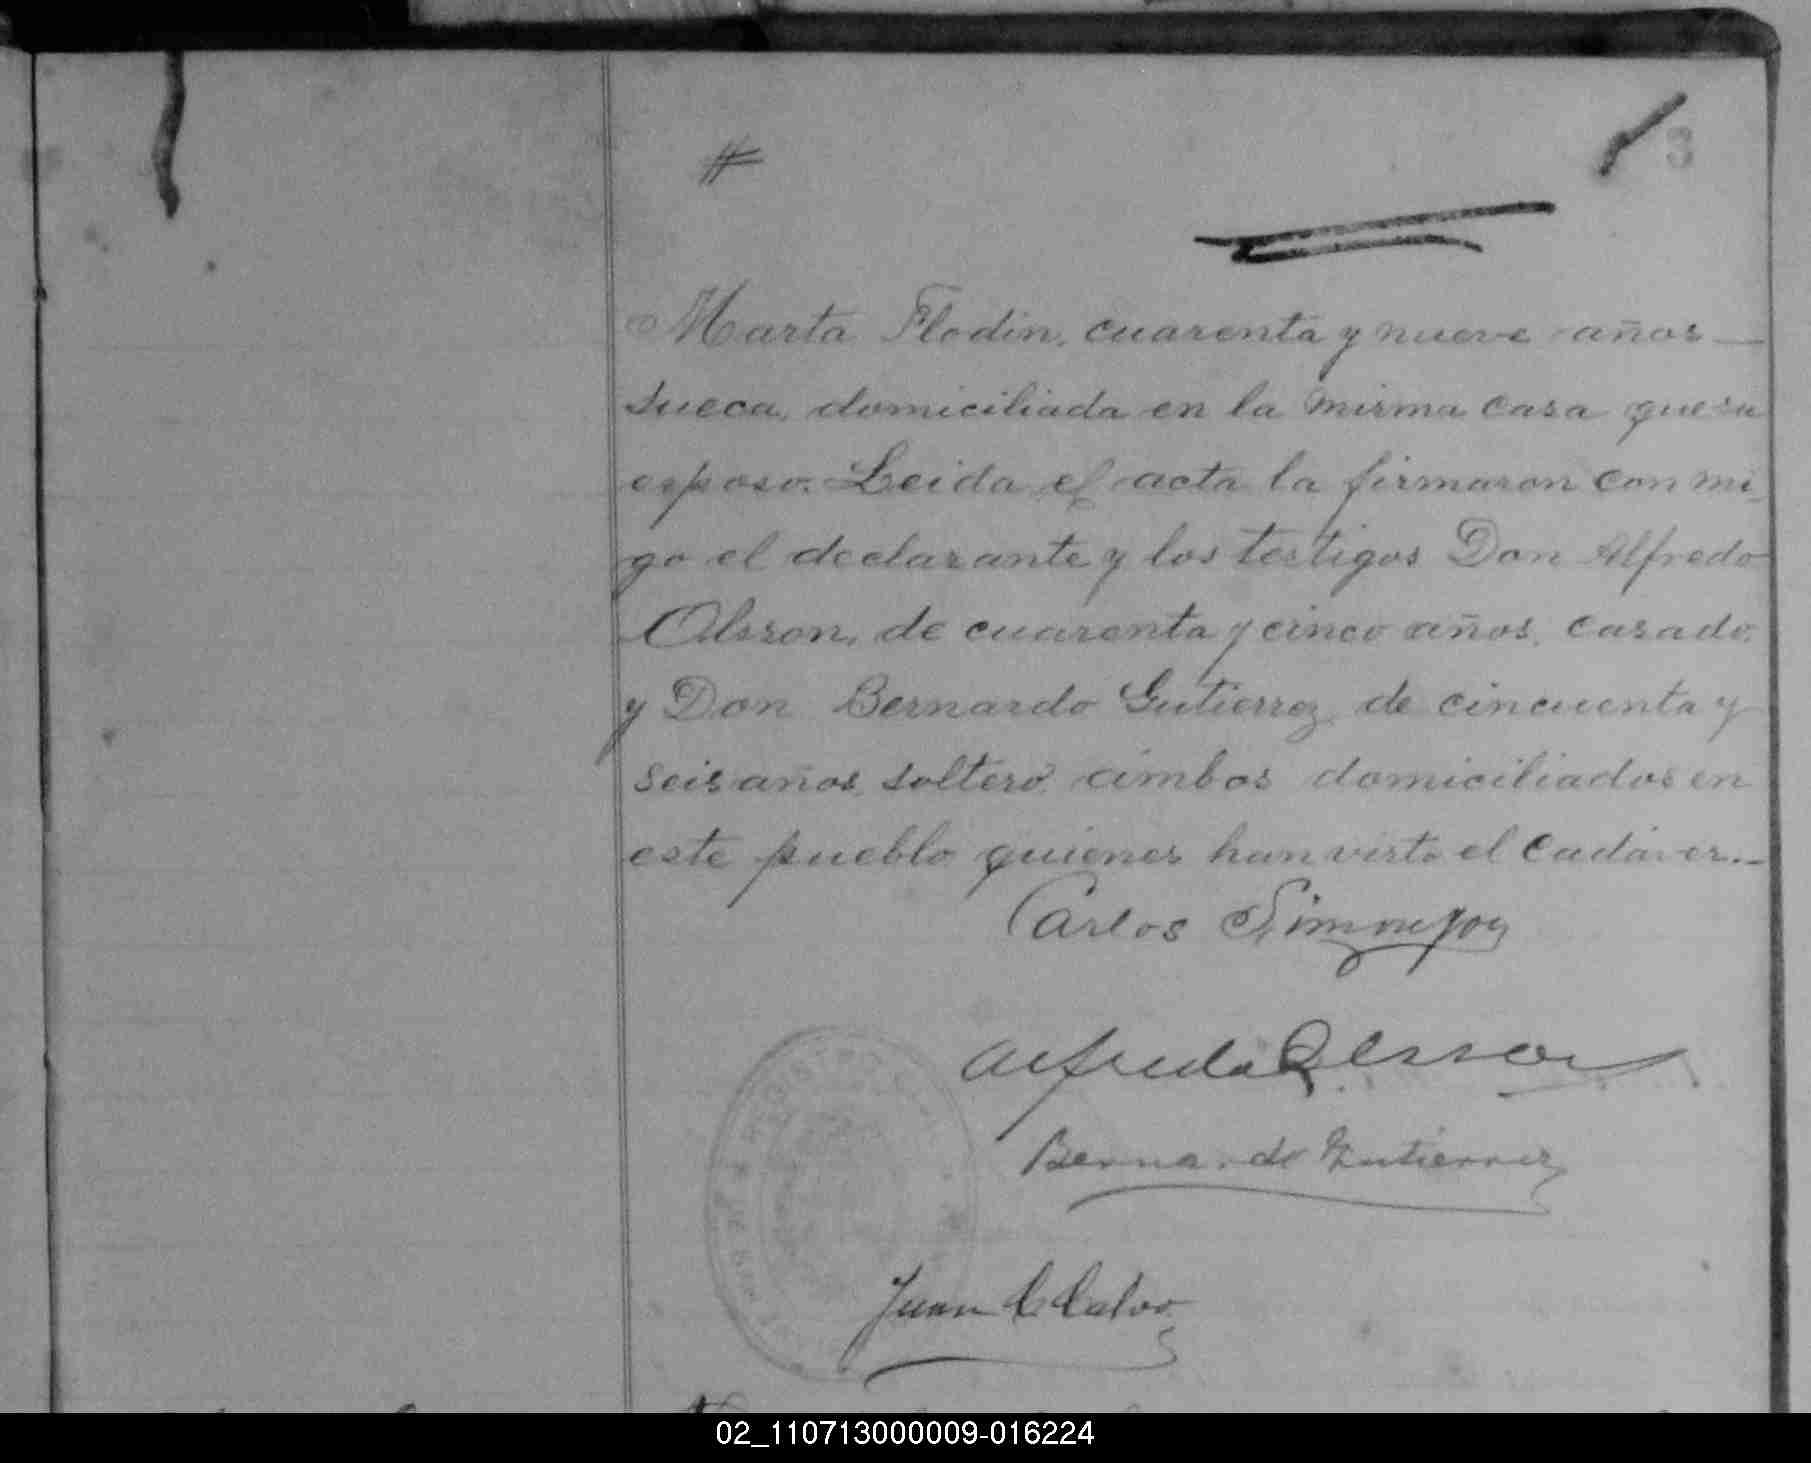 #
3
Marta Flodin, cuarenta y nueve años —
sueca, domiciliada en la misma casa que su
esposo. Leida el acta la firmaron con mi
go el declarante y los testigos Don Alfredo
Olsson, de cuarenta y cinco años, casado,
y Don Bernardo Gutierrez, de cincuenta y
seis años, soltero, ambos domiciliados en
este pueblo quienes han visto el cadáver.—
Carlos
Alfredo Olsson
Bernardo Gutierrez
Juan C Calvo
02_110713000009-016224